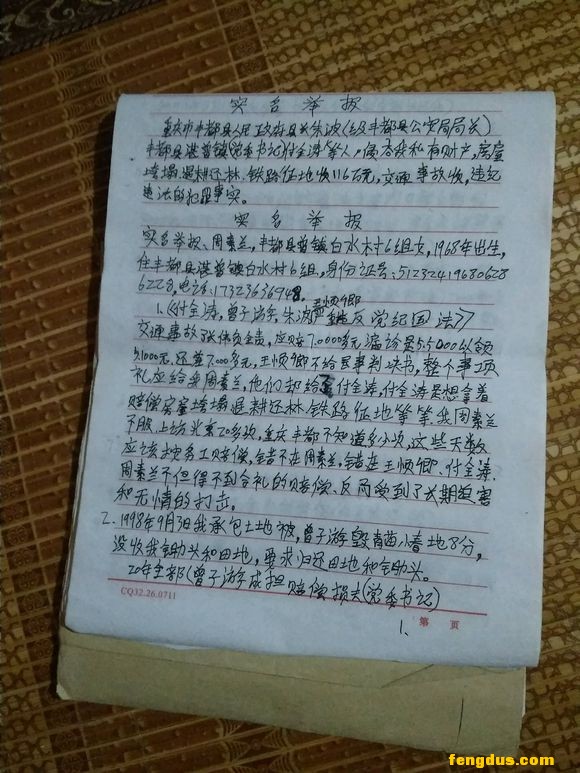 实名举报
重庆市丰都县人民政府县长朱波(丰都县公安局局长)
丰都县湛普镇(党委书记)付全涛等人,侵吞我私有财产,房屋
垮塌退耕还林,铁路征地收116万元,交通事故收,违纪
违法的犯罪事实。
实名举报
实名举报、周素兰,丰都县普镇白水村6组女,1968年出生,
住丰都县湛普镇白水村6组,身份证号:51232419680628
6228,电话:17323636948,王恒卿
1.《付全涛,曾子游,朱波严重违反党纪国法》
交通事故张伟负全责,应赔7.0000多元,5.5000以领
5.1000元,还差7.000多元,王恒卿不给民事判决书,整个事项
礼应给我周素兰,他们却给付全涛,付全涛是想拿着
赔偿房屋垮塌退耕还林、铁路征地等等我周素兰
不服上访北京20多次,重庆丰都不知道多少次,这些天数
应该按务工赔偿,错不在周素兰,错在王恒卿、付全涛.
周素兰不但得不到合礼的赔偿、反而受到了长期迫害
和无情的打击。
2.1998年9月3日我承包土地被,曾子游毁青苗小春地8分,
没收我锄头和田地,要求归还田地和锄头。
20年全部(曾子游承担赔偿损失(党委书记)
CQ32.26.0711
第 页
1、
fengdus.com